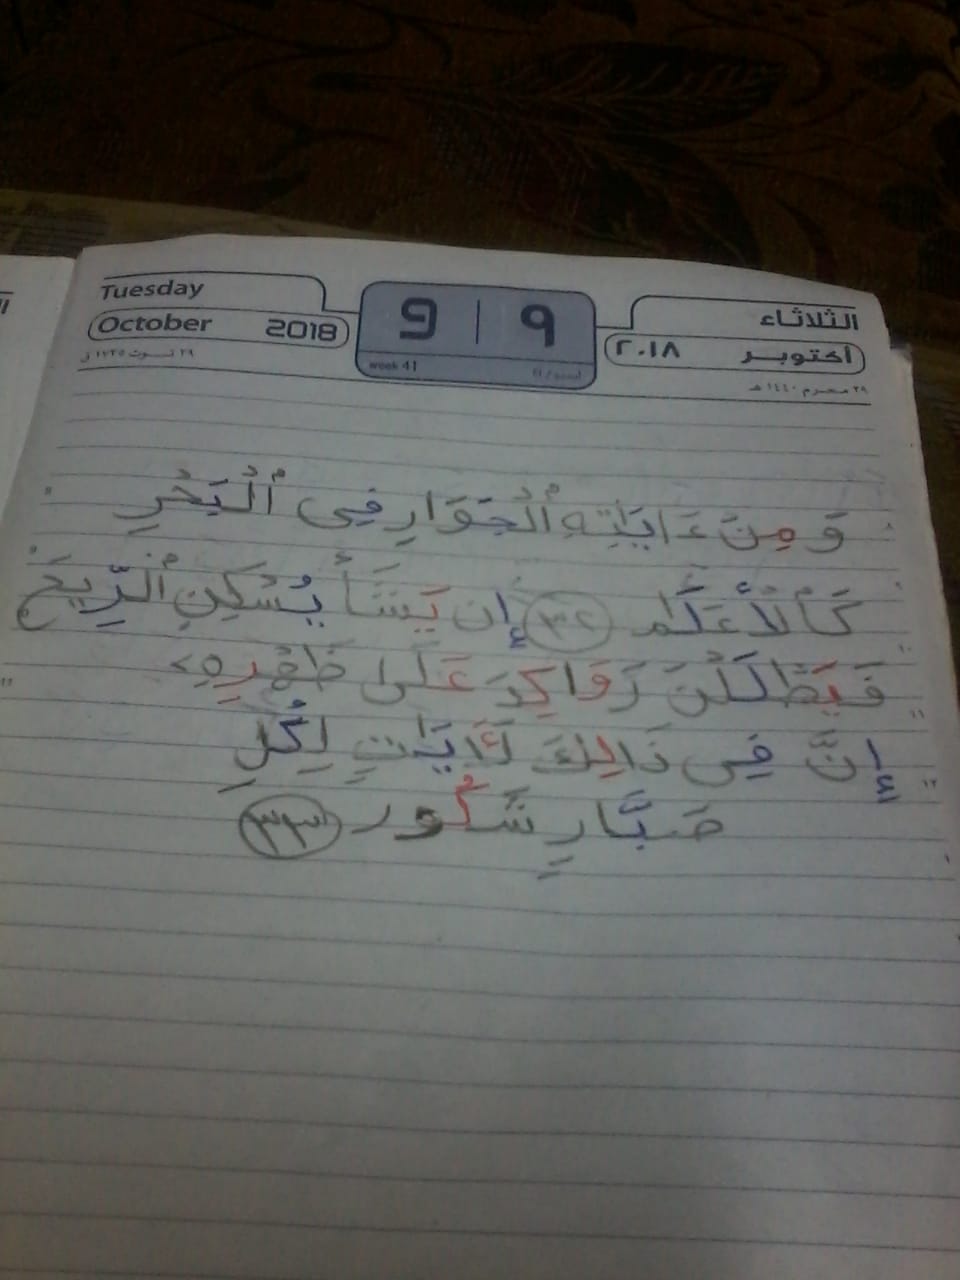 Tuesday
October 2018
9 | ٩
week 41
الثلاثاء
أكتوبر ٢٠١٨
٢٩ توت ١٧٣٥ ق
٢٩ محرم ١٤٤٠ هـ
وَمِنْ ءَايَٰتِهِ ٱلْجَوَارِ فِى ٱلْبَحْرِ
كَٱلْأَعْلَٰمِ ٣٢ إِن يَشَأْ يُسْكِنِ ٱلرِّيحَ
فَيَظْلَلْنَ رَوَاكِدَ عَلَىٰ ظَهْرِهِۦ
إِنَّ فِى ذَٰلِكَ لَءَايَٰتٍ لِّكُلِّ
صَبَّارٍ شَكُورٍ ٣٣